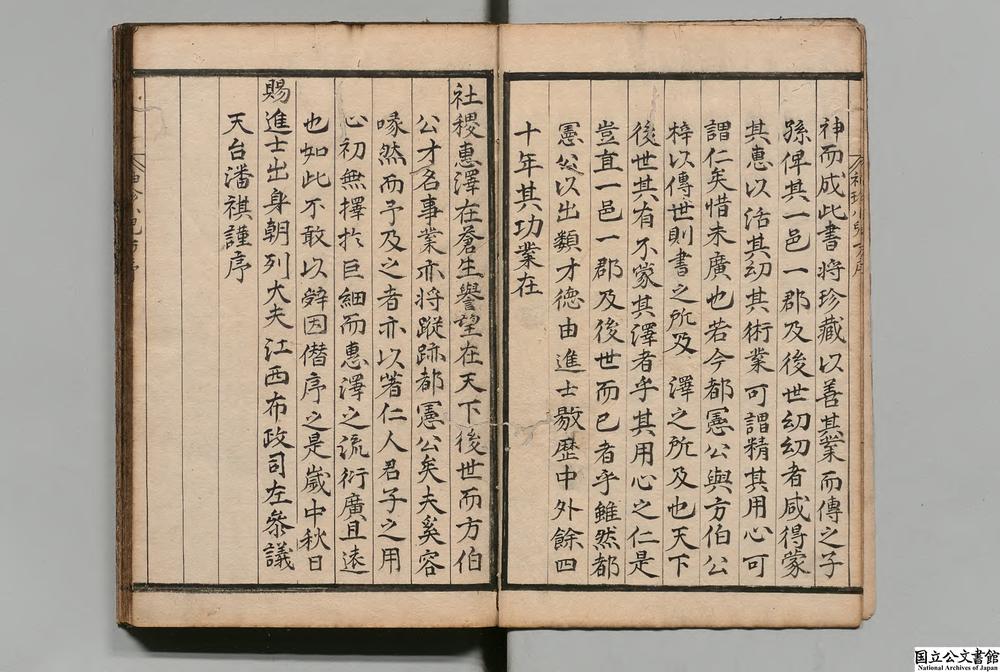 神而成此書將珍藏以善其業而傳之子
孫俾其一邑一郡及後世幼幼者咸得蒙
其惠以活其幼其術業可謂精其用心可
謂仁矣惜未廣也若今都憲公與方伯公
梓以傳世則書之所及澤之所及也天下
後世其有不蒙其澤者乎其用心之仁是
豈直一邑一郡及後世而已者乎雖然都
憲公以出類才德由進士敭歷中外餘四
十年其功業在
社稷惠澤在蒼生譽望在天下後世而方伯
公才名事業亦將蹤跡都憲公矣夫奚容
喙然而予及之者亦以著仁人君子之用
心初無擇於巨細而惠澤之流衍廣且遠
也如此不敢以辭因僭序之是嵗中秋日
賜進士出身朝列大夫江西布政司左參議
天台潘祺謹序
国立公文書館
National Archives of Japan